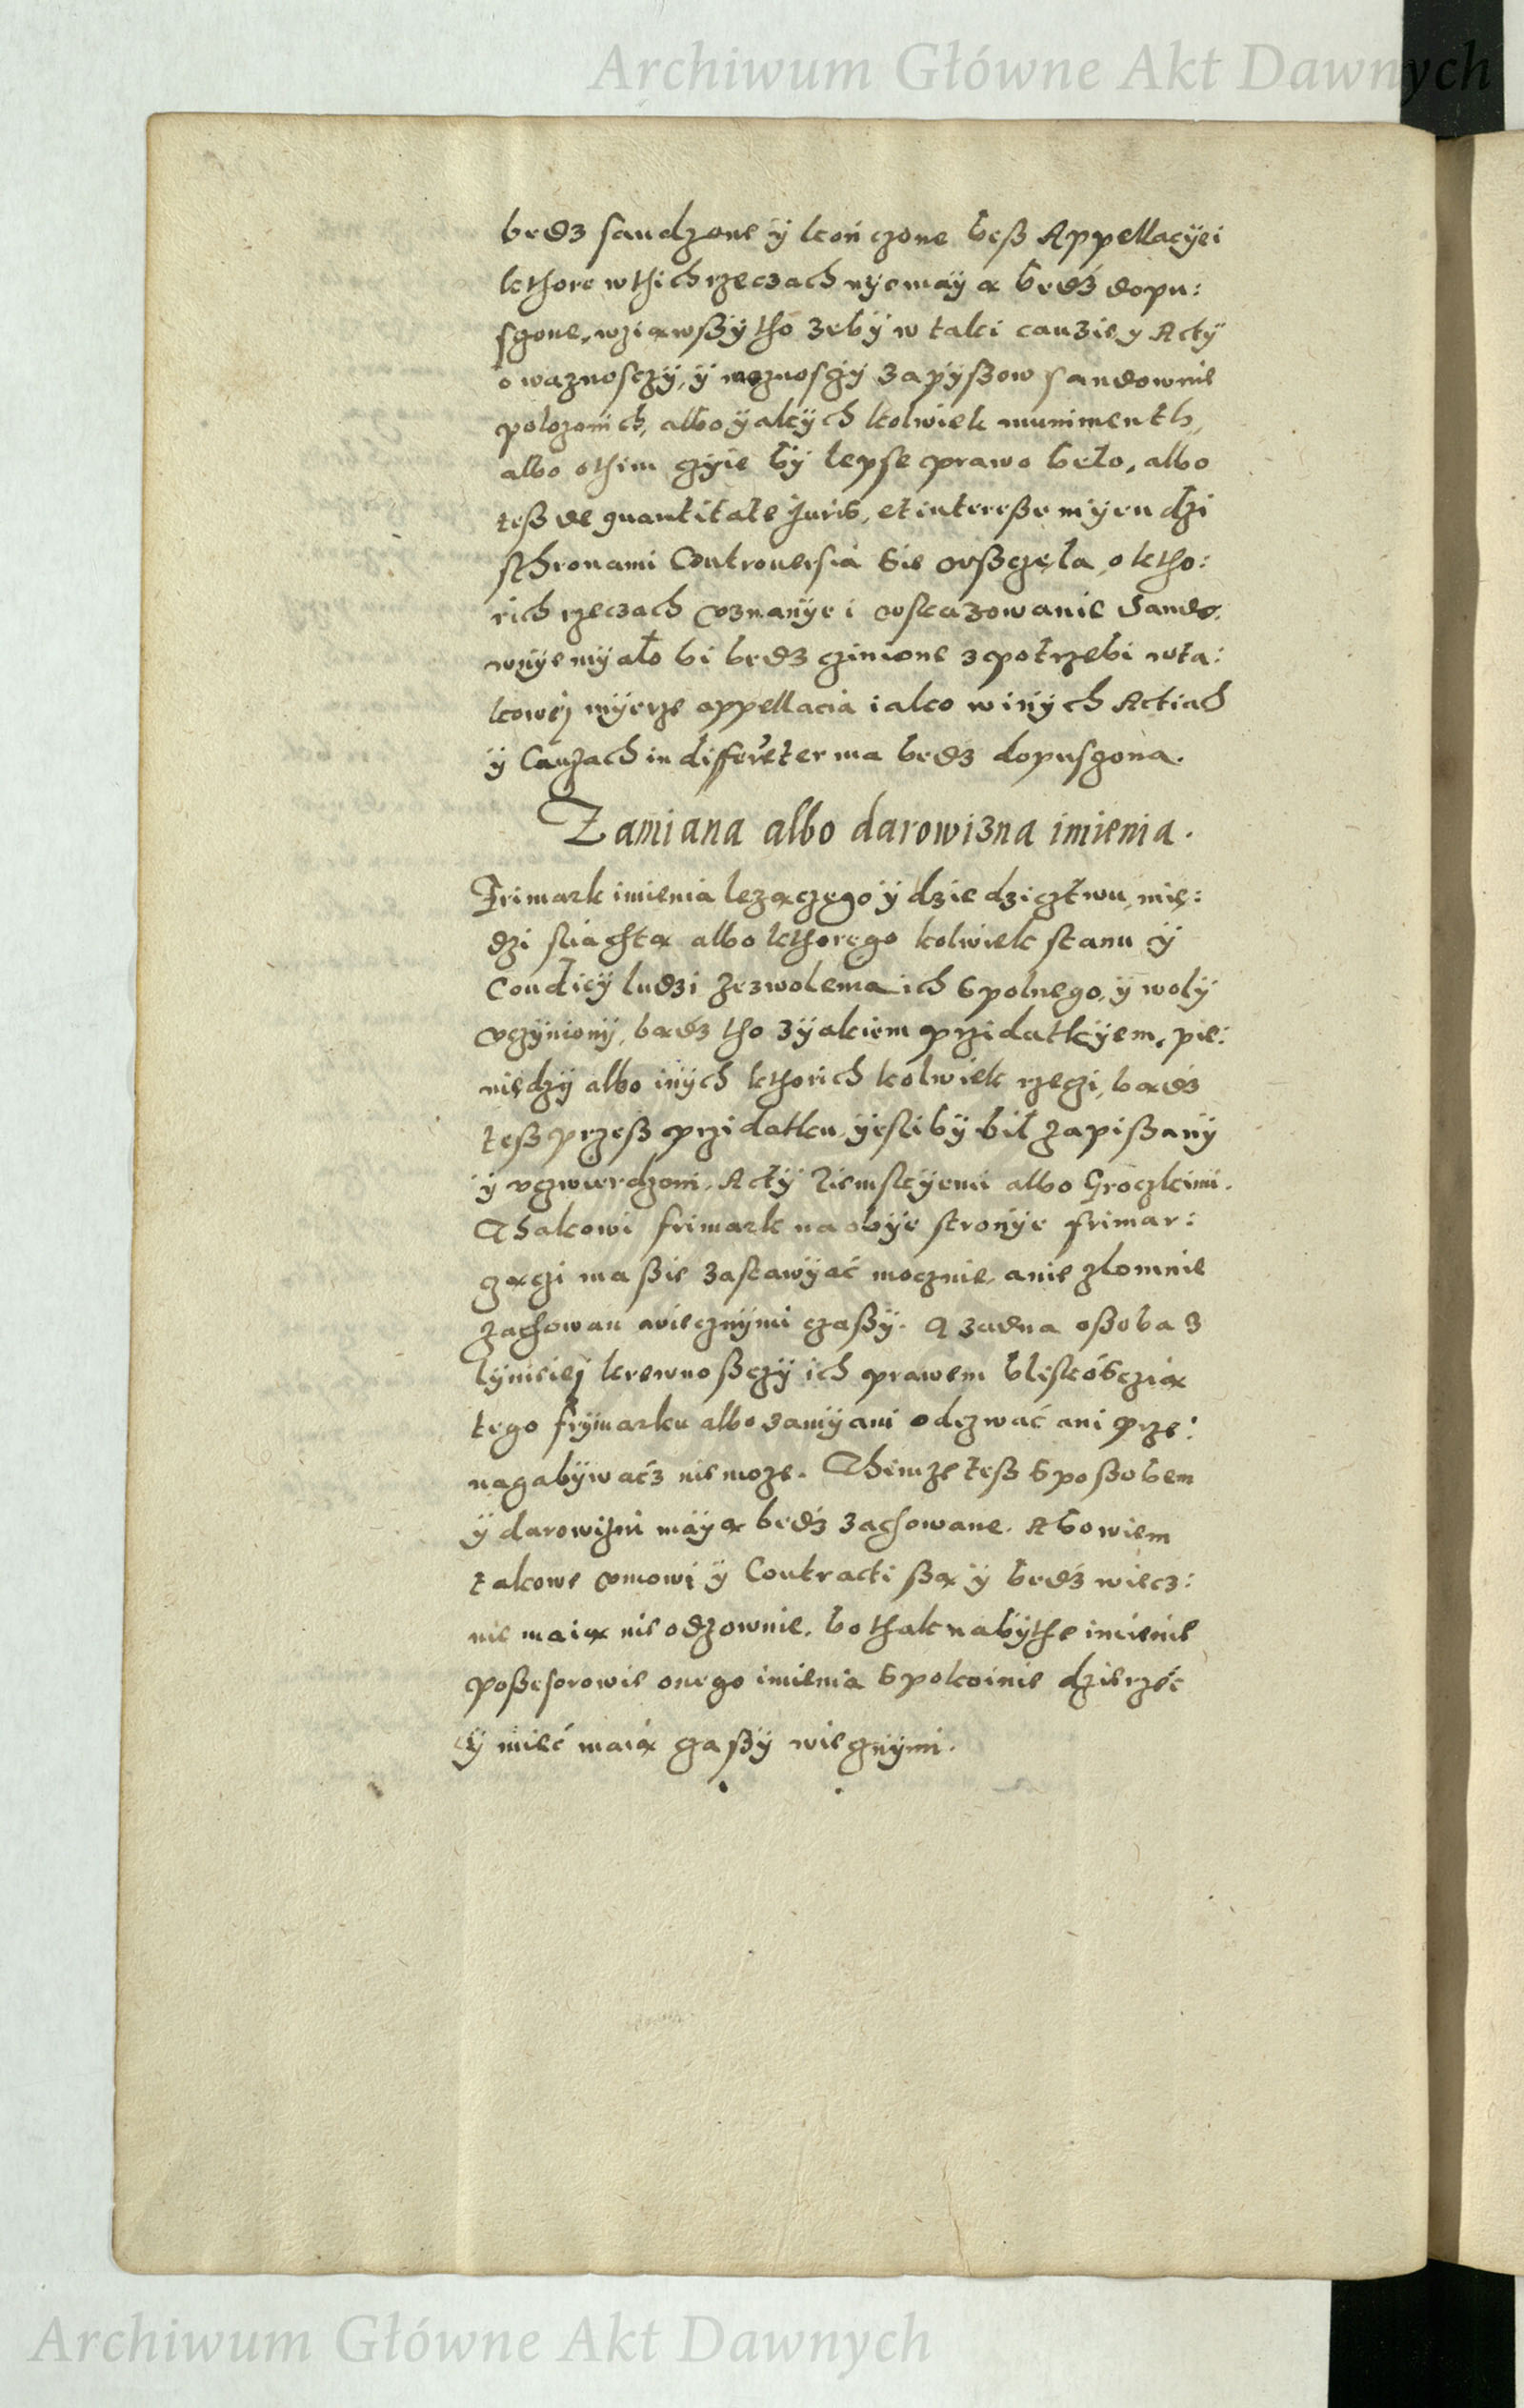 Archiwum Główne Akt Dawnych
bedz sandzone ÿ kończone beß Appellacÿei
kthore wthich rzeczach nÿemaÿα bedz dopu:
sczone, wziαwßÿ tho zebÿ w taki cauzie y Actÿ
o waznosczÿ, ÿ moznosczÿ zapÿßow sandownie
polozonich, albo ÿakÿch kolwiek muniment,
albo othim czÿie bÿ lepse prawo beło, albo
teß de quantitate Juris, et intereße mÿendzi
sthronami Controuersia sie wßczęła, o ktho:
rich rzeczach vznanÿe i wskazowanie Sando,
wnÿe mÿało bi bedz czinione z potrzebi wta:
kowÿ mÿerze appellacia iako w inÿch Actiach
ÿ Cauzach indifferēter ma bedz dopusczona.
Zamiana albo darowizna imienia.
Frimark imienia lezαczego ÿ dziedzicztwu, mię:
dzi sliachtα albo kthorego kolwiek stanu ÿ
Condicÿ ludzi zezwolenia ich spolnego, ÿ wolÿ
vczÿnionÿ, bαdz tho zÿakiem przidatkÿem, pie:
niędzÿ albo inÿch kthorich kolwiek rzeczi, bαdz
teß przeß przidatku, ÿesli bÿ bił zapißanÿ
ÿ vczwierdzoni, Actÿ Ziemskÿemi albo Groczkimi.
Thakowi frimark na obÿe stronÿe frimar:
czαczi ma ßie zastawÿać mocznie, a nie zlomnie
zachowan wiecznÿmi czaßÿ. A zadna oßoba z
lÿnieiej krewnoßczÿ ich prawem bliskoscziα
tego frÿmarku albo zamÿani odezwać ani prze:
nagabÿwacz nie moze. Themze teß sposobem
ÿ darowizni maÿα bedz zachowane. Abowiem
takowe vmowi ÿ Contracti ßα ÿ bedz wiecz:
nie maiα nieodzownie, bo thak nabÿthe imienie
poßesorowie onego imienia spokoinie dzierzéc
ÿ mieć maiα czaßÿ wiecznÿmi.
Archiwum Główne Akt Dawnych